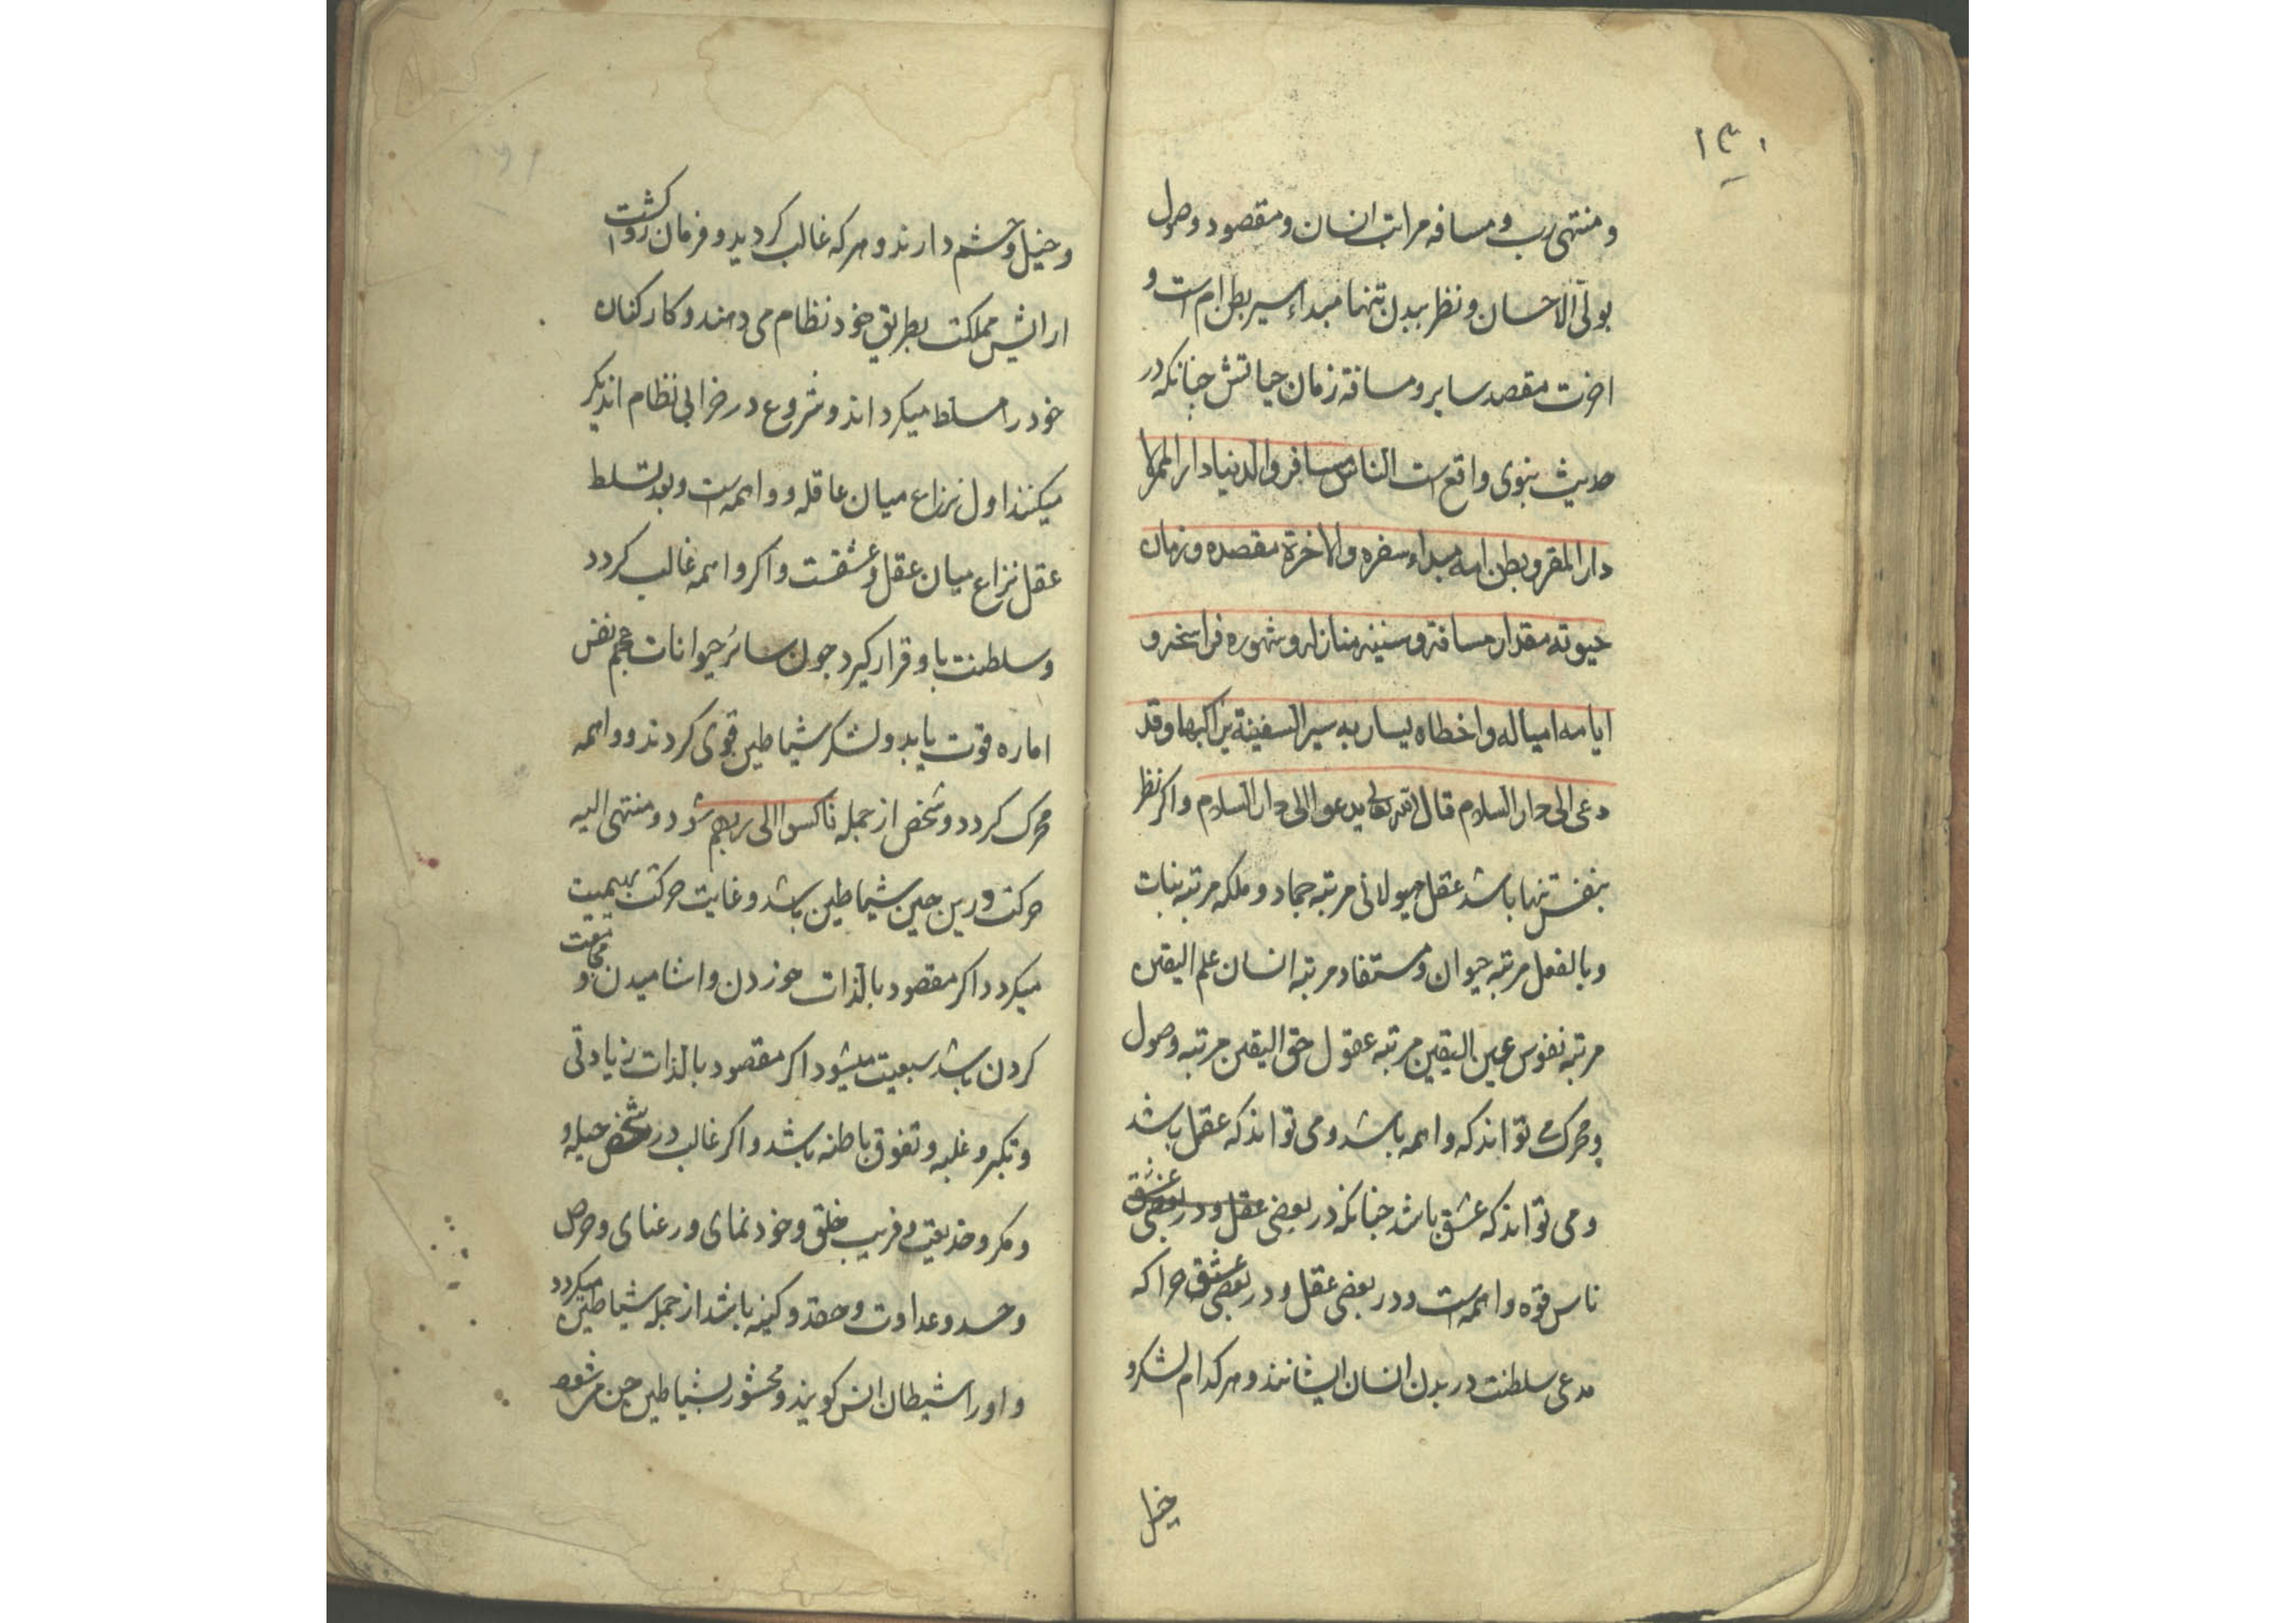 ۱۳۰
و منتهی رب و مسافه مراتب انسان و مقصود وصول
بولی الاحسان و نظر ببدن تنها مبداء سیر بطن ام است و
اخرت مقصد سایر و مسافة زمان حیاتش چنانکه در
حدیث نبوی واقع است الناس مسافر والدنیا دار الممر لا
دار المقر و بطن امه مبداء سفره والاخرة مقصده و زمان
حیوته مقدار مسافته و سنینه منازله و شهوره فراسخه و
ایامه امیاله و اخطاه یسار به سیر السفینة براکبها و قد
دعی الی دار السلام قال الله تعالی یدعوا الی دار السلام و اکر نظر
بنفس تنها باشد عقل هیولانی مرتبه جماد و ملکه مرتبه نبات
و بالفعل مرتبه حیوان و مستفاد مرتبه انسان علم الیقین
مرتبه نفوس عین الیقین مرتبه عقول حق الیقین مرتبه وصول
و محرک می تواند که واهمه باشد و می تواند که عقل باشد
و می تواند که عشق باشد چنانکه در بعضی عقل و در بعضی عشق
ناس قوه واهمه است و در بعضی عقل و در بعضی عشق چرا که
مدعی سلطنت در بدن انسان ایشانند و هر کدام لشکر و
خیل
و خیل و حشم دارند و هر که غالب کردید و فرمان روا کشت
ارایش مملکت بطریق خود نظام می دهند و کارکنان
خود را مسلط میکرداند و شروع در خرابی نظام اندیکر
میکنند اول نزاع میان عاقله و واهمه است و بعد تسلط
عقل نزاع میان عقل و عشقست و اکر واهمه غالب کردد
و سلطنت باو قرار کیرد چون سائر حیوانات عجم نفس
اماره قوت یابد و لشکر شیاطین قوی کردند و واهمه
محرک کردد و شخص از جمله ناکسوا الی ربهم شود و منتهی الیه
حرکت درین حین شیاطین باشد و غایت حرکت بهیمیت
میکردد اکر مقصود بالذات خوردن و اشامیدن و مجامعت
کردن باشد سبعیت میشود اکر مقصود بالذات زیادتی
و تکبر و غلبه و تفوق باطنه باشد و اکر غالب در شخص حیله و
و مکر و خدیعت و فریب خلق و خود نمای و رعنای و حرص
و حسد و عداوت و حقد و کینه باشد از جمله شیاطین میکردد
و او را شیطان انس کویند و محشور بشیاطین جن میشود